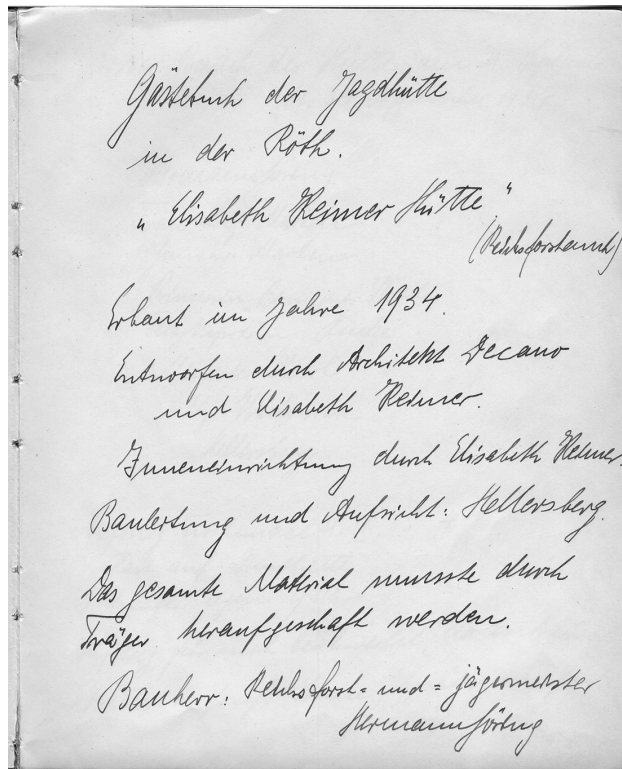 Gästebuch der Jagdhütte
in der Röth.
„Elisabeth Reimer Hütte"
(Reichsforstamt)
Erbaut im Jahre 1934.
Entworfen durch Architekt Decano
und Elisabeth Reimer.
Inneneinrichtung durch Elisabeth Reimer.
Bauleitung und Aufsicht: Hellersberg.
Das gesamte Material musste durch
Träger heraufgeschafft werden.
Bauherr: Reichsforst- und = jägermeister
Hermann Göring